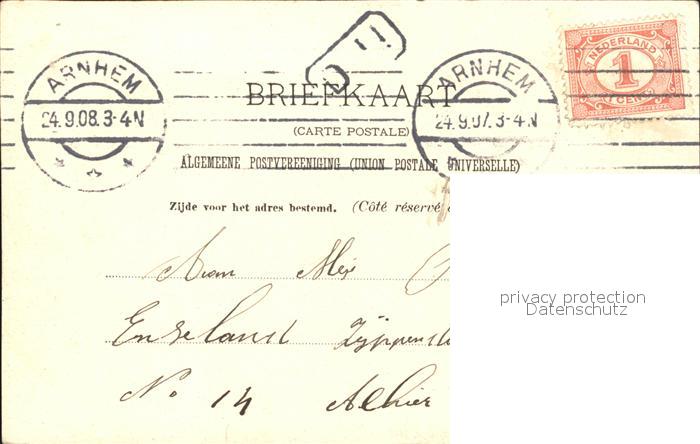 ARNHEM
24.9.08.3-4N
ARNHEM
24.9.07.3-4.N
NEDERLAND
1
1 CENT
BRIEFKAART
(CARTE POSTALE)
ALGEMEENE POSTVEREENIGING (UNION POSTALE UNIVERSELLE)
Zijde voor het adres bestemd. (Côté réservé
Aan Mej
No 14 Alhier
privacy protection
Datenschutz